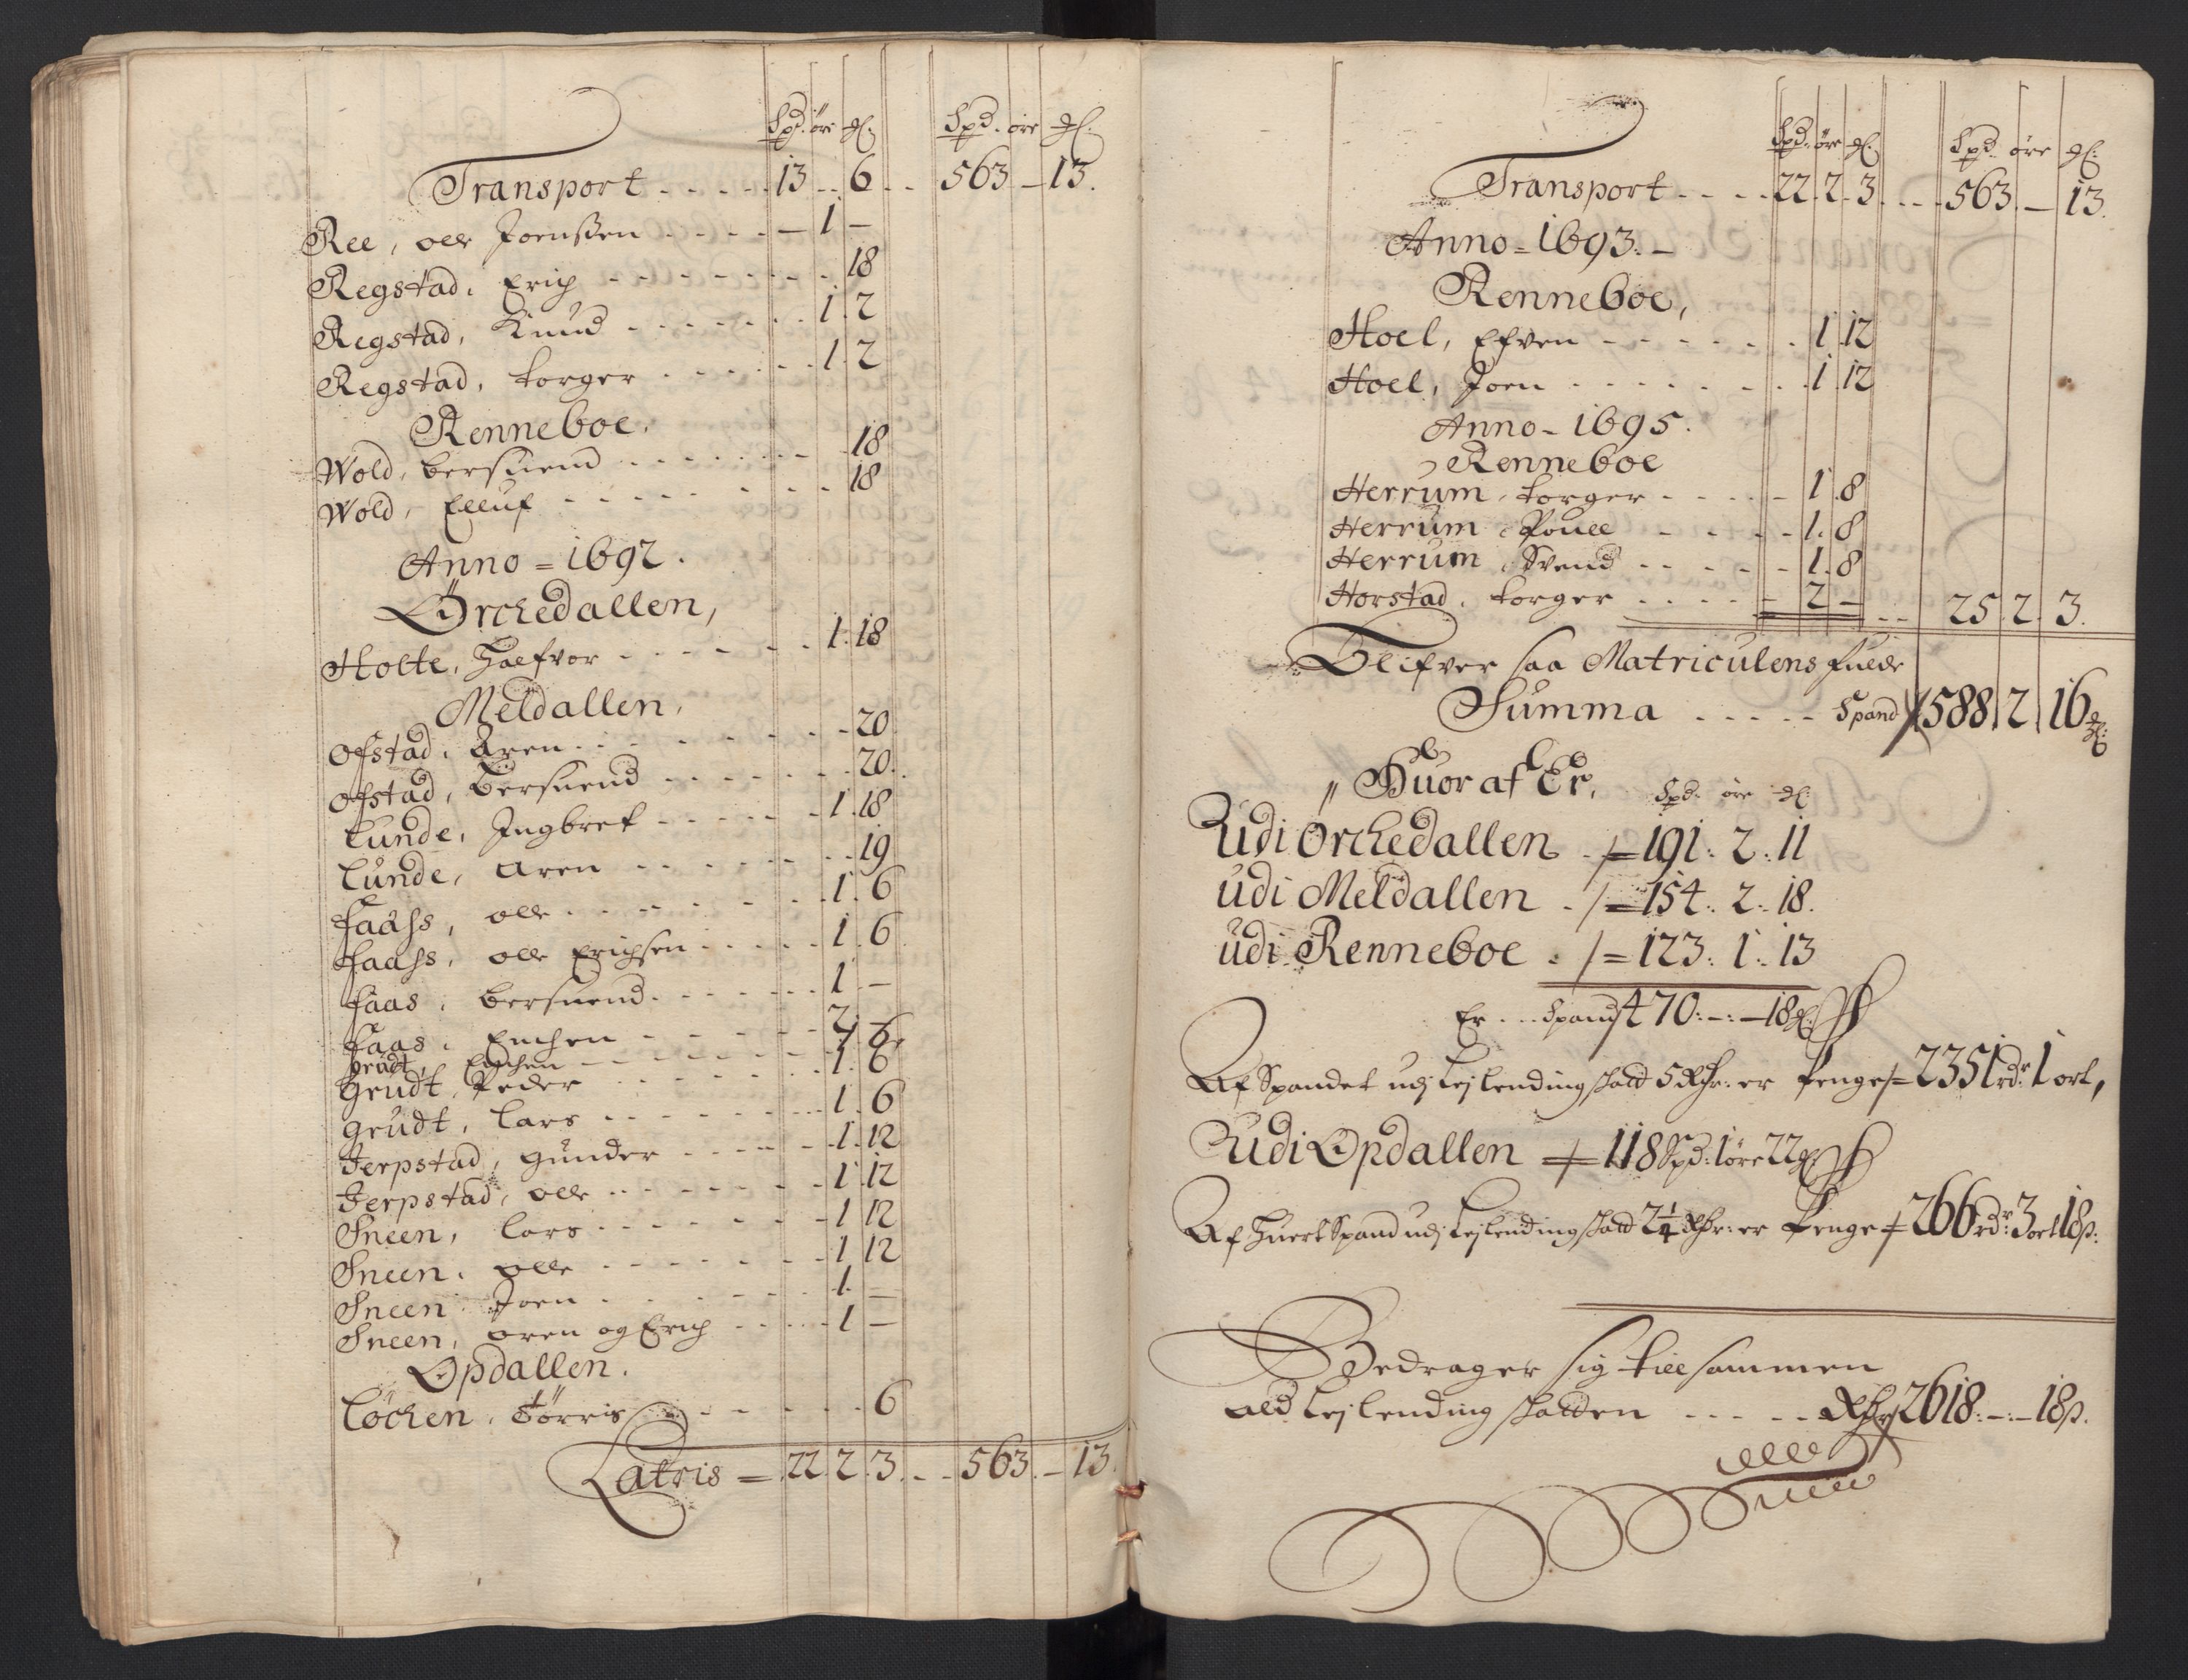 Spd. öre gl. Spd. öre gl.
Transport - - - - - 13 - - 6 - - 563 - 13.
Ree, olle Joenssen - - - - - 1 -
Regstad, Erich - - - - - - - 18
Regstad, Knud - - - - - - - 1. 2
Regstad, torger - - - - - - 1. 2
Renneboe.
Wold, bersuend - - - - - - - 18
Wold, Elluf - - - - - - - - 18
Anno = 1692.
Örchedallen,
Holte, Halfvor - - - - - - 1. 18
Meldallen,
Ofstad, Aren - - - - - - - 20
Ofstad, bersuend - - - - - - 20.
Lunde, Ingbret - - - - - - 1. 18
Lunde, Aren - - - - - - - 19
faahs, olle - - - - - - - 1. 6
faahs, olle Erichsen - - - - - 1. 6
faas, bersuend - - - - - - 1. -
faas, Enchen - - - - - 2. -
grudt, Enchen - - - - - - - 1. 6
grudt, Peder - - - - - - 1. 6
grudt, Lars - - - - - - - 1. 6
Jerpstad, gunder - - - - - 1. 12
Jerpstad, olle - - - - - - - 1. 12
Sneen, Lars - - - - - - - 1 12
Sneen, olle - - - - - - - 1 12
Sneen Joen - - - - - - - 1. -
Sneen, oren og Erich - - - - - 1 -
Opdallen.
Löchen, Törris - - - - - - 6
Latris = 22. 2. 3. - - 563. - 13.
Spd. öre gl. Spd. öre gl.
Transport - - - - 22. 2. 3. - - - 563. - 13.
Anno = 1693. -
Renneboe,
Hoel, Efven - - - - - - - 1 12
Hoel, Joen - - - - - - - 1 12
Anno - 1695.
Renneboe
Herrum, torger - - - - - 1. 8
Herrum Pouel - - - - - 1. 8
Herrum Svend - - - - - 1. 8
Horstad, torger - - - - - 2 - - - 25. 2. 3.
Blifver saa Matriculens fulde
Summa - - - - - Spand 588. 2. 16 gl.
Huor af Er, Spd. öre gl.
Udi Orchedallen - 191: 2: 11
Udi Meldallen - 154: 2: 18.
udi Renneboe - 123: 1: 13
Er - - - Spand 470: - : - 18 gl.
Af Spandet udj Lejlending shatt 5 Rdr: er Penge 2351 rdr: 1 ort,
Udi Opdallen 118 Spd: 1 öre 22 gl.
Af Huert Spand udj Lejlending shatt 2 1/4 Rdr: er Penge 266 rdr: 3 ort 18 s:
Bedrager sig till sammen
ald Lejlending shatten - - - - - Rdr 2618: - : - 18 s.